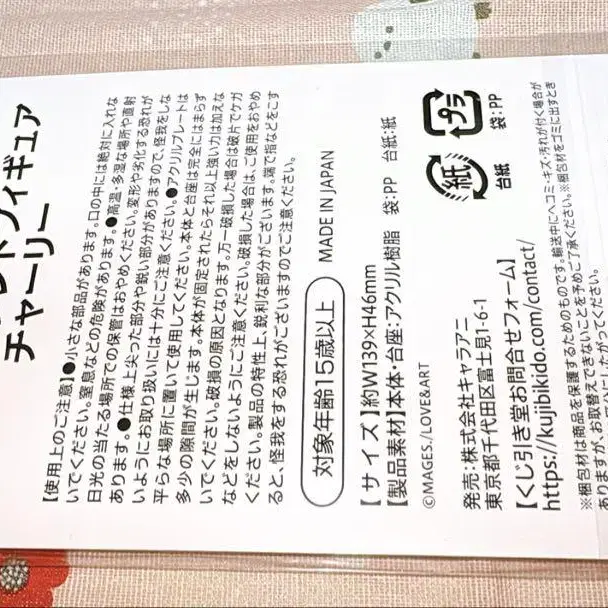 フィギュア
チャーリー
【使用上のご注意】●小さな部品があります。口の中には絶対に入れな
いでください。窒息などの危険があります。●高温・多湿な場所や直射
日光の当たる場所での保管はおやめください。変形や劣化する恐れが
あります。●仕様上尖った部分や鋭い部分がありますので、怪我をしな
いようにお取り扱いには十分にご注意ください。●アクリルプレートは
平らな場所に置いて使用してください。本体と台座は完全にはまらず
多少の隙間が生じます。本体が固定されたらそれ以上強い力は加えな
いでください。破損の原因となります。万一破損した場合は破片でケガ
などをしないようにご注意ください。破損した場合は、ご使用をおやめ
ください。製品の特性上、鋭利な部分がございます。端で指などをこす
ると、怪我をする恐れがございますのでご注意ください。
対象年齢15歳以上 MADE IN JAPAN
【サイズ】約W139×H46mm
【製品素材】本体・台座:アクリル樹脂 袋:PP 台紙:紙
©MAGES./LOVE&ART
発売:株式会社キャラアニ
東京都千代田区富士見1-6-1
【くじ引き堂お問合せフォーム】
https://kujibikido.com/contact/
紙
台紙
プラ
袋:PP
※梱包材は商品を保護するためのものです。輸送中にヘコミ・キズ・汚れが付く場合が
ありますが、お取替えできないことを予めご了承ください。※梱包材をゴミに出すとき